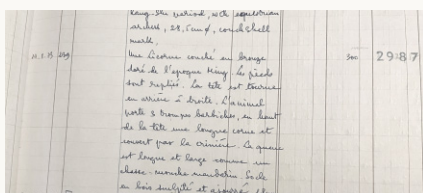 Kang-Shi period, with equestrian
archers, 28,5cm ϕ, conch shell
mark.
Une Licorne couché en bronze
doré de l'époque Ming. Les pieds
sont repliés. La tête est tournée
en arrière à droite. L'animal
porte 3 barbiches, en haut
de la tête une longue corne et
couvert par la crinière. La queue
est longue et large comme un
chasse-mouche mandarin. Socle
en bois sculpté et
300 2987